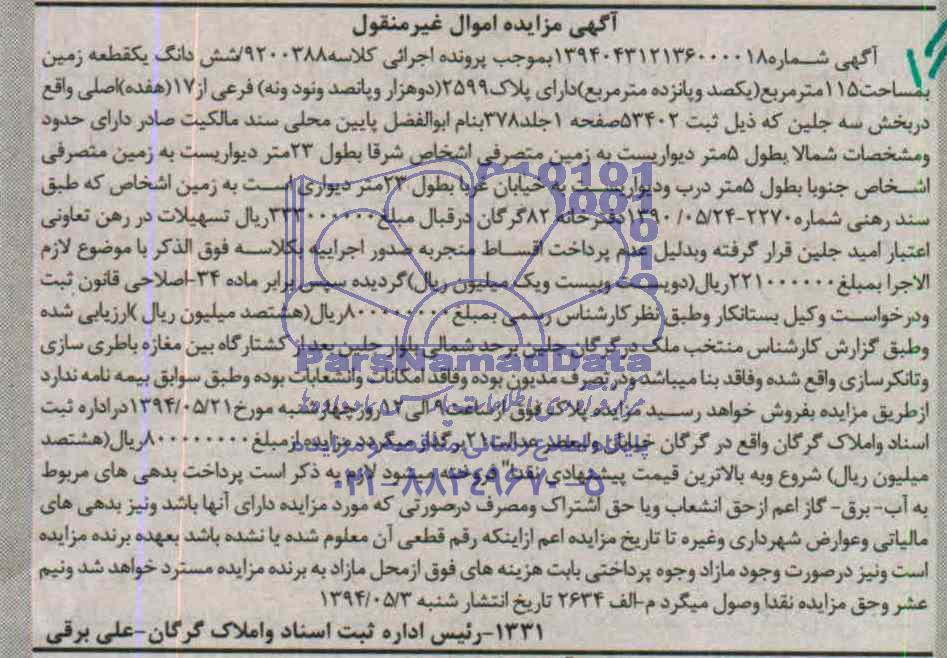 آگهی مزایده اموال غیرمنقول
آگهی شماره۱۳۹۴۰۴۳۱۲۱۳۶۰۰۰۰۱۸بموجب پرونده اجرائی کلاسه۹۲۰۰۳۸۸/شش دانگ یکقطعه زمین
بمساحت۱۱۵مترمربع(یکصد وپانزده مترمربع)دارای پلاک۲۵۹۹(دوهزار وپانصد ونود ونه) فرعی از۱۷(هفده)اصلی واقع
دربخش سه جلین که ذیل ثبت ۵۳۴۰۲صفحه ۱جلد۳۷۸بنام ابوالفضل پایین محلی سند مالکیت صادر دارای حدود
ومشخصات شمالا بطول ۵متر دیواریست به زمین متصرفی اشخاص شرقا بطول ۲۳متر دیواریست به زمین متصرفی
اشخاص جنوبا بطول ۵متر درب ودیواریست به خیابان غربا بطول ۲۳متر دیواری است به زمین اشخاص که طبق
سند رهنی شماره۲۲۷۰-۱۳۹۰/۰۵/۲۴ دفترخانه ۸۲گرگان درقبال مبلغ۳۳۳۰۰۰۰۰۰ریال تسهیلات در رهن تعاونی
اعتبار امید جلین قرار گرفته وبدلیل عدم پرداخت اقساط منجربه صدور اجراییه بکلاسه فوق الذکر با موضوع لازم
الاجرا بمبلغ۲۲۱۰۰۰۰۰۰ریال(دویست وبیست ویک میلیون ریال)گردیده سپس برابر ماده ۳۴-اصلاحی قانون ثبت
ودرخواست وکیل بستانکار وطبق نظر کارشناس رسمی بمبلغ۸۰۰۰۰۰۰۰۰ریال(هشتصد میلیون ریال )ارزیابی شده
وطبق گزارش کارشناس منتخب ملک در گرگان جلین برحد شمالی بلوار جلین بعد از کشتارگاه بین مغازه باطری سازی
وتانکرسازی واقع شده وفاقد بنا میباشد ودر تصرف مدیون بوده وفاقد امکانات وانشعابات بوده وطبق سوابق بیمه نامه ندارد
ازطریق مزایده بفروش خواهد رسید مزایده پلاک فوق از ساعت۹ الی ۱۲ روز چهارشنبه مورخ۱۳۹۴/۰۵/۲۱دراداره ثبت
اسناد واملاک گرگان واقع در گرگان خیابان ولیعصر عدالت۲۱ برگذار میگردد مزایده ازمبلغ۸۰۰۰۰۰۰۰۰ریال(هشتصد
میلیون ریال) شروع وبه بالاترین قیمت پیشنهادی نقدا" فروخته میشود لازم به ذکر است پرداخت بدهی های مربوط
به آب- برق- گاز اعم ازحق انشعاب ویا حق اشتراک ومصرف درصورتی که مورد مزایده دارای آنها باشد ونیز بدهی های
مالیاتی وعوارض شهرداری وغیره تا تاریخ مزایده اعم ازاینکه رقم قطعی آن معلوم شده یا نشده باشد بعهده برنده مزایده
است ونیز درصورت وجود مازاد وجوه پرداختی بابت هزینه های فوق ازمحل مازاد به برنده مزایده مسترد خواهد شد ونیم
عشر وحق مزایده نقدا وصول میگرد م-الف ۲۶۳۴ تاریخ انتشار شنبه ۱۳۹۴/۰۵/۳
۱۳۳۱-رئیس اداره ثبت اسناد واملاک گرگان-علی برقی
ParsNamadData
۰۲۱-۸۸۳۴۹۶۷۰-۵